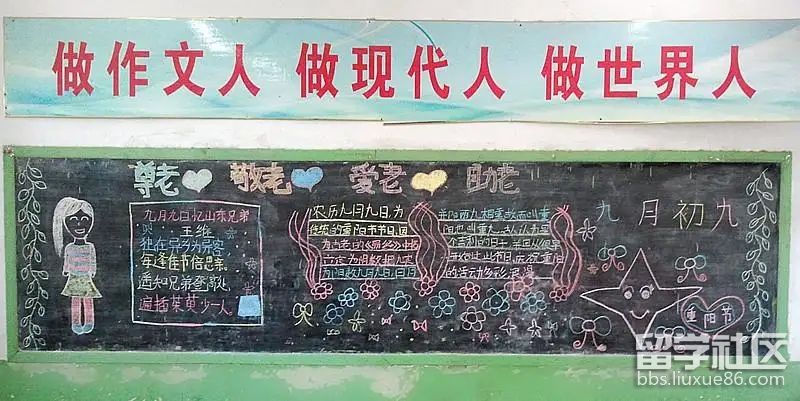 做作文人 做现代人 做世界人
尊老 敬老 爱老 助老
九月九日忆山东兄弟
王维
独在异乡为异客,
每逢佳节倍思亲。
遥知兄弟登高处,
遍插茱萸少一人。
农历九月九日,为
传统的重阳节节日,因
为古老的《易经》中把
六定为阴数把九定
为阳数九月九日,日月
并阳两九相重故而叫重
阳也叫重九
的活动多彩浪漫
九月初九
重阳节
留学社区
bbs.liuxue86.com